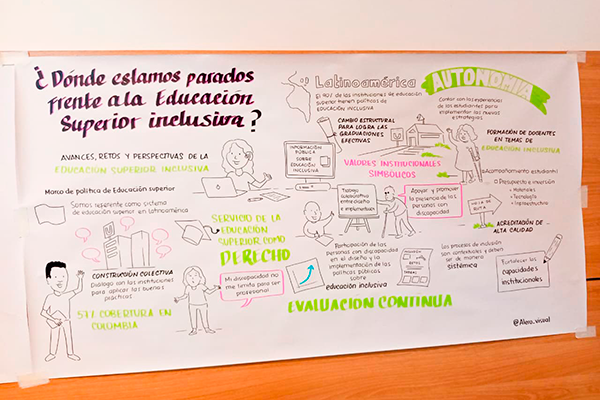 ¿Dónde estamos parados
frente a la Educación
Superior inclusiva?
AVANCES, RETOS Y PERSPECTIVAS DE LA
EDUCACIÓN SUPERIOR INCLUSIVA
Marco de política de Educación superior
Somos referente como sistema
de educación superior en latinoamérica
CONSTRUCCIÓN COLECTIVA
Diálogo con las instituciones
para aplicar las buenas
prácticas
57% COBERTURA EN
COLOMBIA
SERVICIO DE LA
EDUCACIÓN
SUPERIOR COMO
DERECHO
Mi discapacidad no
me limita para ser
profesional
Latinoamérica
de las instituciones de educación
superior tienen políticas de
EDUCACIÓN INCLUSIVA
CAMBIO ESTRUCTURAL
PARA LOGRAR LAS
GRADUACIONES
EFECTIVAS
INFORMACIÓN
PÚBLICA
SOBRE
EDUCACIÓN
INCLUSIVA
VALORES INSTITUCIONALES
SIMBÓLICOS
Trabajo
colaborativo
entre diseño
e implementación
Apoyar y promover
la presencia de las
personas con
discapacidad
Participación de las
personas con discapacidad
en el diseño y la
implementación de las
políticas públicas
sobre
educación inclusiva
EVALUACION CONTINUA
AUTONOMIA
Contar con las experiencias
de los estudiantes para
implementar las nuevas
estrategias
FORMACIÓN DE DOCENTES
EN TEMAS DE
EDUCACIÓN INCLUSIVA
Acompañamiento estudiantil
Presupuesto e inversión
Materiales
Tecnología
Infraestructura
HOJA DE
RUTA
ACREDITACIÓN DE
ALTA CALIDAD
Los procesos de inclusión
son contextuales y deben
ser de manera
sistémica
Fortalecer las
capacidades
institucionales
@Alero_visual